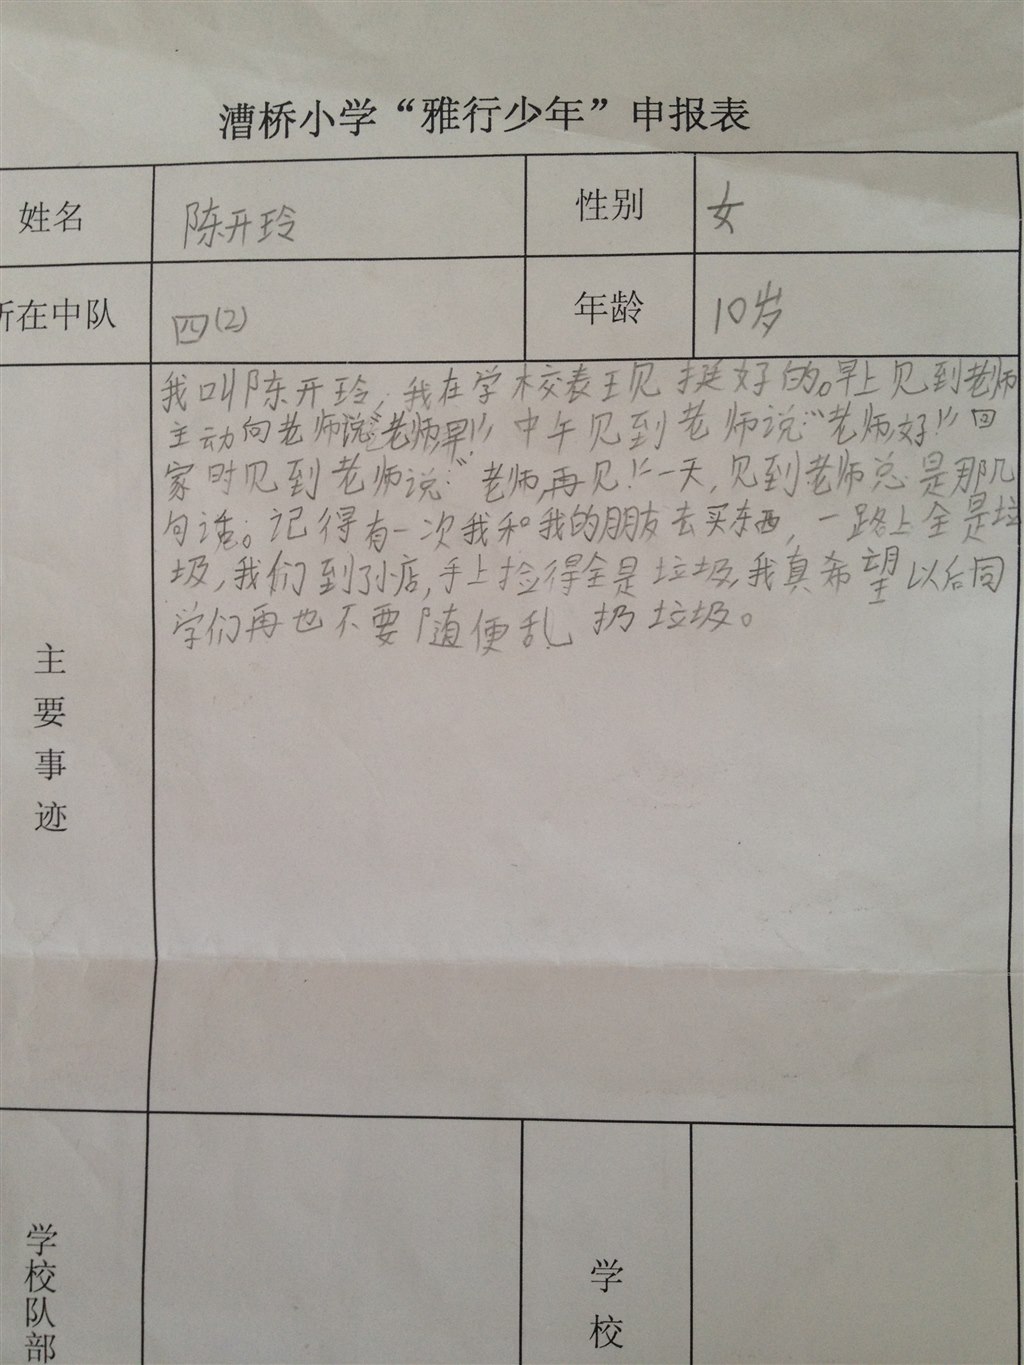 漕桥小学“雅行少年”申报表
姓名 陈开玲 性别 女
所在中队 四(2) 年龄 10岁
我叫陈开玲，我在学校表王见挺好的。早上见到老师
主动向老师说：“老师早!”中午见到老师说：“老师好!”回
家时见到老师说：“老师,再见!”一天,见到老师总是那几
句话。记得有一次我和我的朋友去买东西，一路上全是垃
圾,我们到小店,手上捡得全是垃圾,我真希望以后同
学们再也不要随便乱扔垃圾。
主要事迹
学校队部
学校